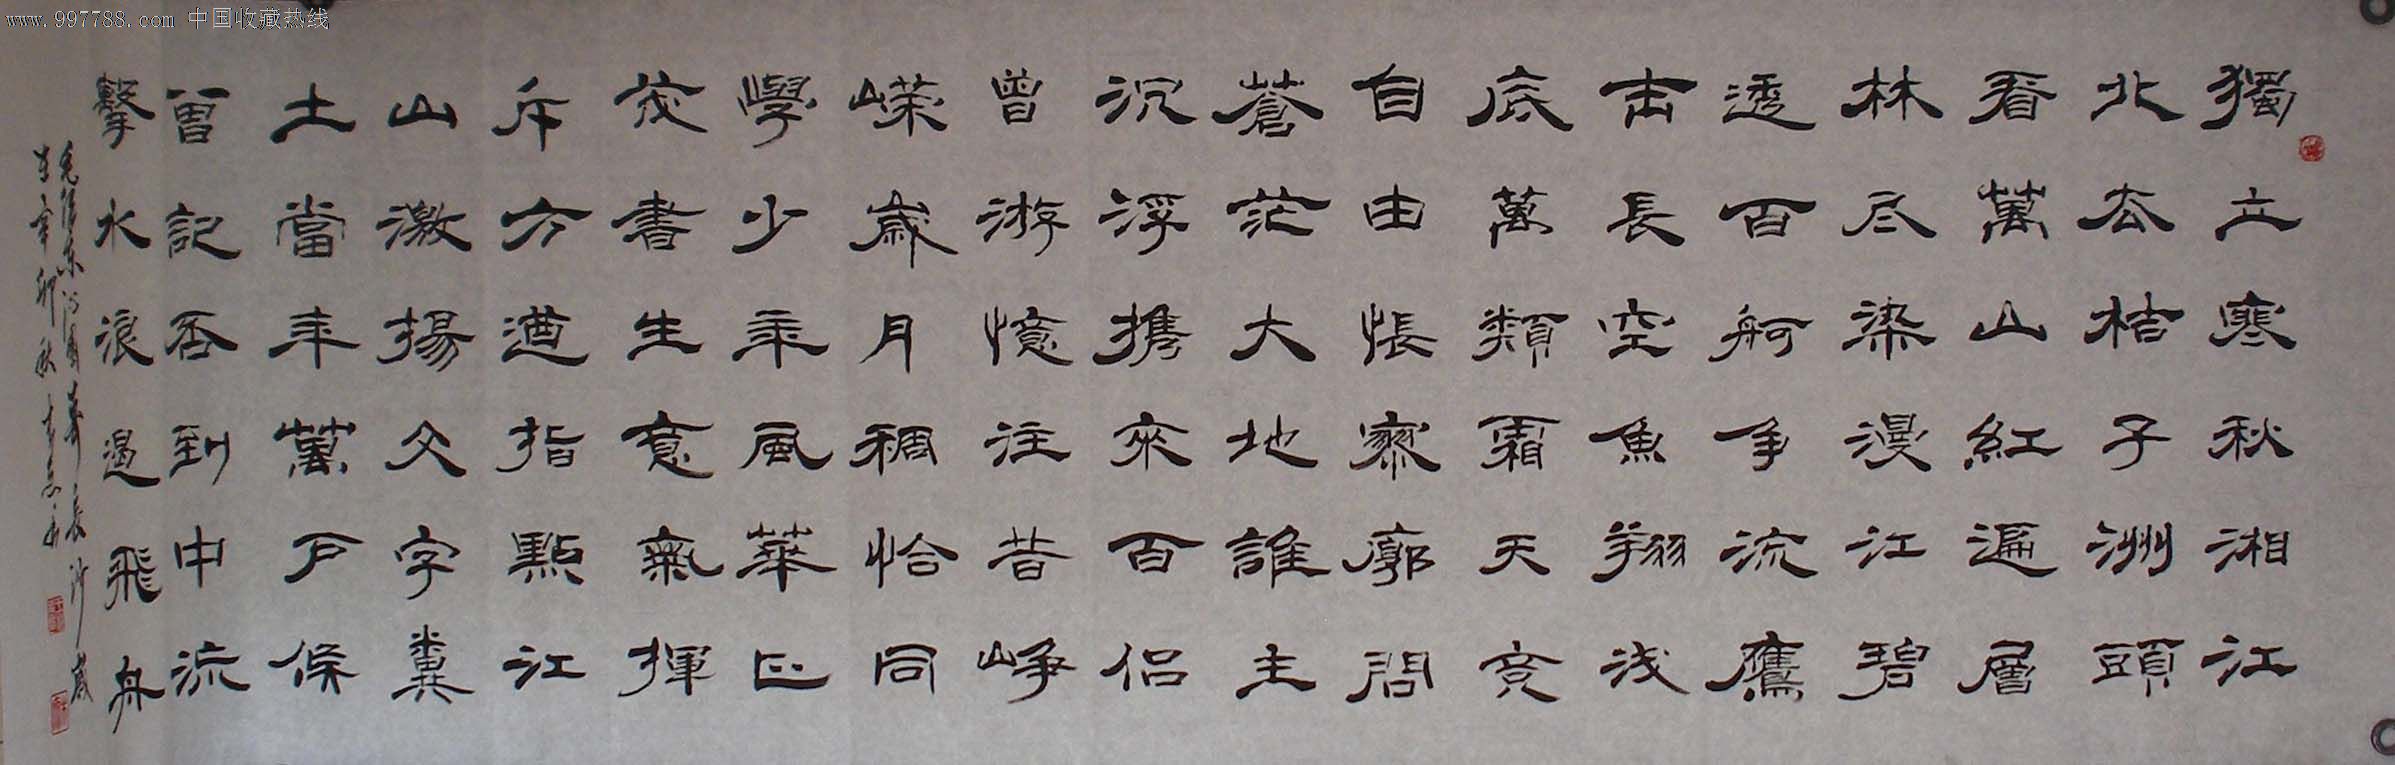 www.997788.com 中国收藏热线
獨立寒秋湘江
北去桔子洲頭
看萬山紅遍層
林尽染漫江碧
透百舸争流鷹
击長空魚翔浅
底萬類霜天竞
自由悵寥廓問
蒼茫大地誰主
沉浮携來百侣
曾游憶往昔峥
嵘歲月稠恰同
學少年風華正
茂書生意氣揮
斥方遒指點江
山激揚文字糞
土當年萬户侯
曾記否到中流
擊水浪遏飛舟
毛澤东沁園春長沙歲
在辛卯秋